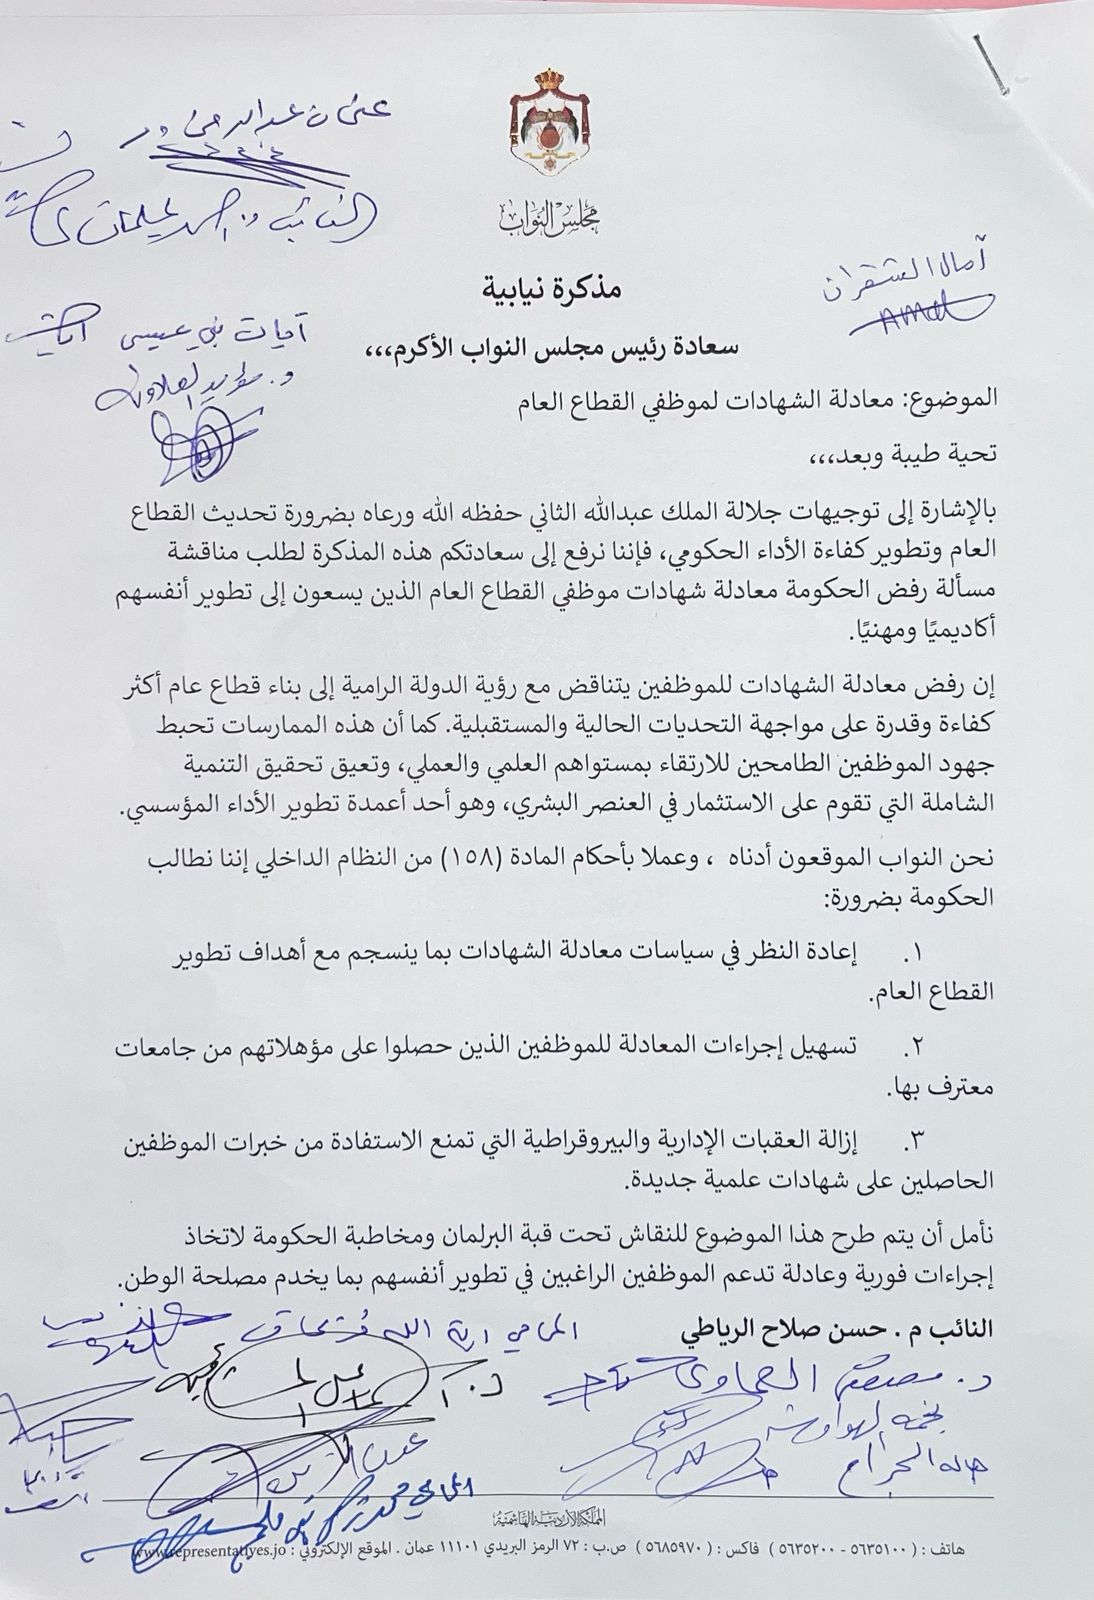 عثمان عبدالرحمن
النائب د. احمد
مجلس النواب
آمال الشقران
Amal
مذكرة نيابية
آيات بني عيسى
سعادة رئيس مجلس النواب الأكرم،،،
د. مؤيد العلاونة
الموضوع: معادلة الشهادات لموظفي القطاع العام
تحية طيبة وبعد،،،
بالإشارة إلى توجيهات جلالة الملك عبدالله الثاني حفظه الله ورعاه بضرورة تحديث القطاع
العام وتطوير كفاءة الأداء الحكومي، فإننا نرفع إلى سعادتكم هذه المذكرة لطلب مناقشة
مسألة رفض الحكومة معادلة شهادات موظفي القطاع العام الذين يسعون إلى تطوير أنفسهم
أكاديميًا ومهنيًا.
إن رفض معادلة الشهادات للموظفين يتناقض مع رؤية الدولة الرامية إلى بناء قطاع عام أكثر
كفاءة وقدرة على مواجهة التحديات الحالية والمستقبلية. كما أن هذه الممارسات تحبط
جهود الموظفين الطامحين للارتقاء بمستواهم العلمي والعملي، وتعيق تحقيق التنمية
الشاملة التي تقوم على الاستثمار في العنصر البشري، وهو أحد أعمدة تطوير الأداء المؤسسي.
نحن النواب الموقعون أدناه ، وعملا بأحكام المادة (١٥٨) من النظام الداخلي إننا نطالب
الحكومة بضرورة:
١. إعادة النظر في سياسات معادلة الشهادات بما ينسجم مع أهداف تطوير
القطاع العام.
٢. تسهيل إجراءات المعادلة للموظفين الذين حصلوا على مؤهلاتهم من جامعات
معترف بها.
٣. إزالة العقبات الإدارية والبيروقراطية التي تمنع الاستفادة من خبرات الموظفين
الحاصلين على شهادات علمية جديدة.
نأمل أن يتم طرح هذا الموضوع للنقاش تحت قبة البرلمان ومخاطبة الحكومة لاتخاذ
إجراءات فورية وعادلة تدعم الموظفين الراغبين في تطوير أنفسهم بما يخدم مصلحة الوطن.
النائب م . حسن صلاح الرياطي
المحامي اية الله فريحات
د.
نجمه الهواوشه
هاله الجراح
المملكة الأردنية الهاشمية
هاتف : ( ٥٦٣٥١٠٠ - ٥٦٣٥٢٠٠ ) فاكس : ( ٥٦٨٥٩٧٠ ) ص.ب : ٧٢ الرمز البريدي ١١١٠١ عمان . الموقع الإلكتروني : www.representatives.jo